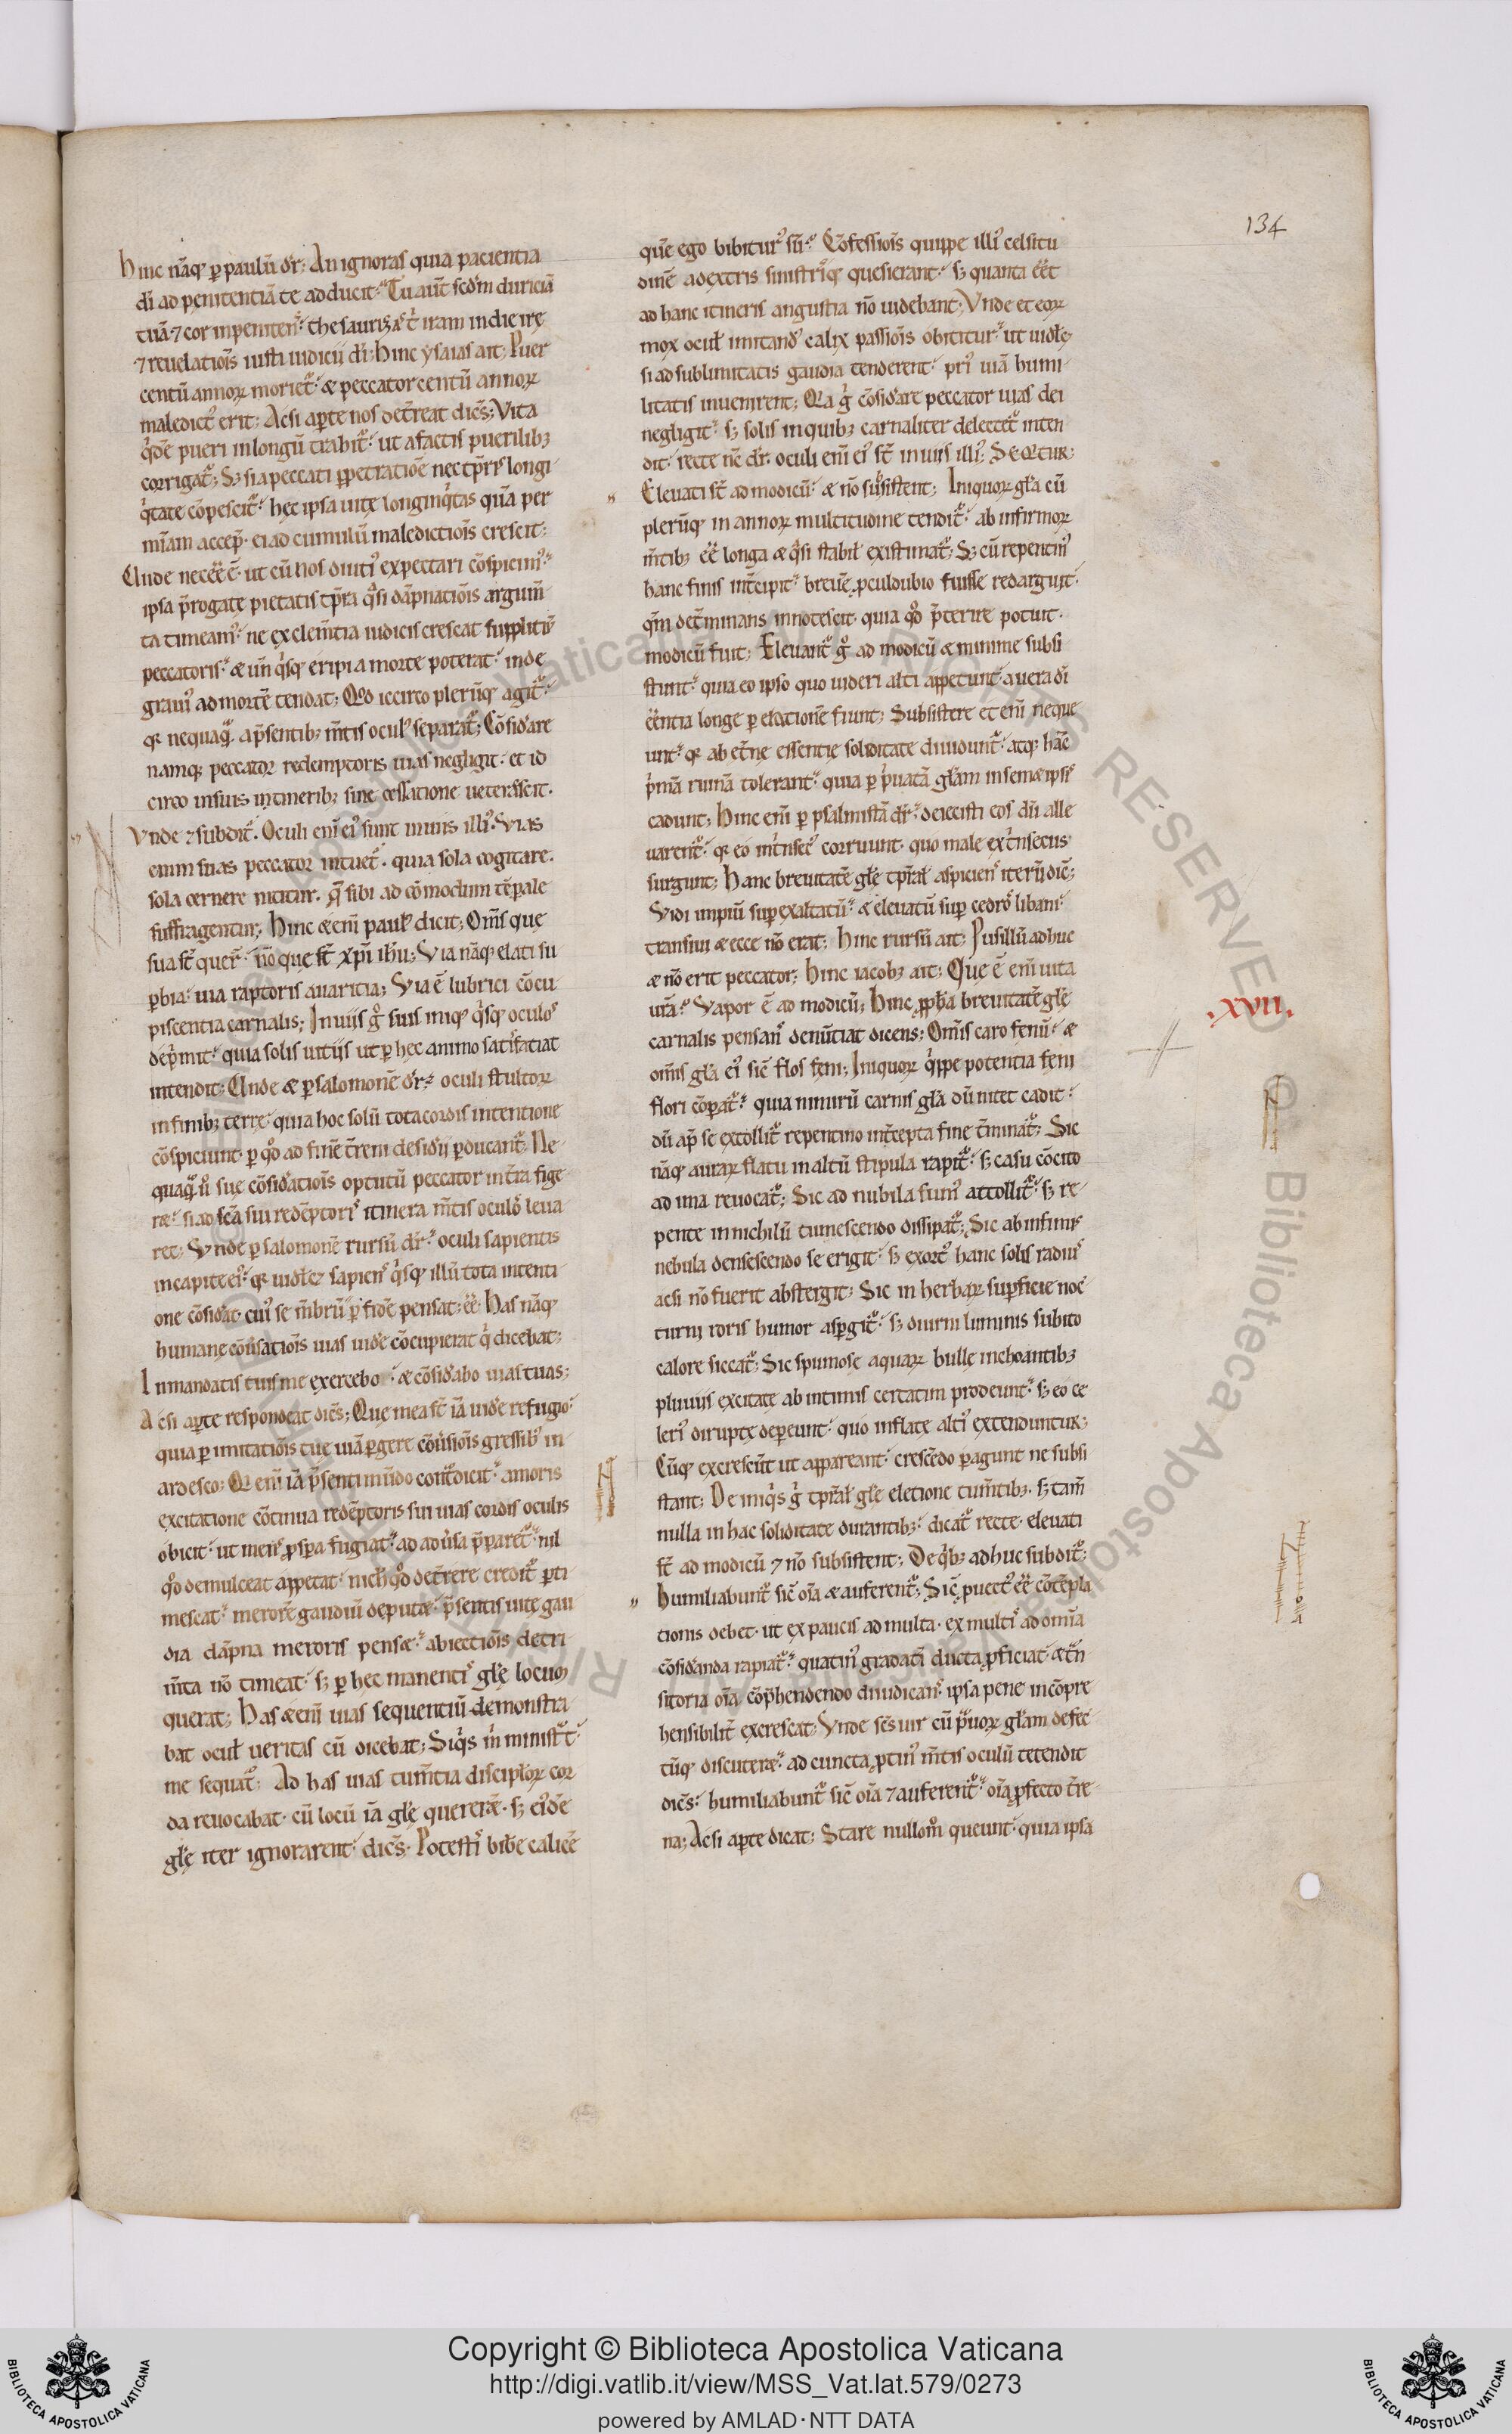 134
Hinc nãq; p paulũ dr̃: An ignoras quia pacientia
dĩ ad penitentiã te adducit. Tu aut̃ scdm duriciã
tuã ⁊ cor inpenitens. thesaurizas t̃ iram in die irę
⁊ reuelatiõis iusti iudicii dĩ: Hinc ysaias ait; Puer
centũ annoꝝ morietr̃. & peccator centũ annoꝝ
maledict' erit; Acsi apte nos det̃reat dicẽs; Vita
qdẽ pueri in longũ trahitr̃. ut a factis puerilibꝫ
corrigatr̃; Sꝫ si a peccati ppetratiõe nec tp̃ris longi
q̃tate cõpescitr̃. hęc ipsa uitę longinq̃tas quã per
mĩam accep̃. ei ad cumulũ maledictiõis crescit:
Unde necẽẽ ẽ. ut cũ nos diuti' expectari cõspicim'.
ipsa p̃rogatę pietatis tp̃ra qsi dãpnatiõis argum̃
ta timeam'. ne ex clem̃tia iudicis crescat suppliciũ
peccatoris. & uñ qsq; eripi a morte poterat. inde
graui' ad mortẽ tendat; Qđ iccirco plerũq; agitr̃.
qꝛ nequaq̃ a p̃sentibꝫ m̃tis ocul' separatr̃; Cõsidare
namq; peccator redemptoris uias negligit. et id
circo in suis itineribꝫ sine cessatione ueterascit.
Vnde ⁊ subdit̃. Oculi eni ei' sunt in uiis illi'. Vias
enim suas peccator intuet̃. quia sola cogitare.
sola cernere nititur. q̃ sibi ad cõmodum tẽporale
suffragentur; Hinc & eni paul' dicit; Om̃s que
sua st̃ quer̃. nõ que st̃ xp̃i ihũ; Via nãq; elati su
pbia. uia raptoris auaritia; Via ẽ lubrici cõcu
piscentia carnalis; In uiis g̊ suis iniq; qsq; oculos
dep̃mit. quia solis uitiis ut p hec animo satisfaciat
intendit; Unde & p salomonẽ dr̃. oculi stultoꝝ
in finibꝫ terrę. quia hoc solũ tota cordis intentione
cõspiciunt. p qđ ad finẽ t̃reni desiderii pducantr̃. Ne
quaq̃ ů suę cõsidatiõis optutũ peccator in t̃ra fige
ræ. si ad sc̃a sui redẽptoris itinera m̃tis oculos leua
ret; Vnde p salomonẽ rursũ dr̃. oculi sapientis
in capite ei'. qꝛ uidelicꝫ sapiens qsq; illũ tota intenti
one cõsidat. cui' se m̃brũ p fidẽ pensat. ẽẽ; Has nãq;
humanę cõuersatiõis uias uide cõcupierat q dicebat;
In mandatis tuis me exercebo. & cõsidabo uias tuas;
Acsi apte respondeat dicẽs; Que mea st̃ iã uide refugio.
quia p imitatiõis tue uiã pgere cõuersiõis gressib' in
ardesco; Q eni iã p̃senti mũdo contradicit. amoris
excitatione cõtinua redẽptoris sui uias cordis oculis
obicit. ut mens pspera fugiat. ad aduersa p̃paretr̃. nil
qđ demulceat appetat. nich' qđ det̃rere creditr̃ pti
mescat. merorẽ gaudiũ deputæ. p̃sentis uitę gau
dia dãpna meroris pensæ. abiectiõis detri
m̃ta nõ timeat. sꝫ p hec manentis glę locuꝫ
querat; Has & eni uias sequentiũ demonstra
bat ocul' ueritas cũ dicebat; Siq's m̃ ministrat.
me sequatr̃; Ad has uias tum̃tia disciploꝝ cor
da reuocabat. cũ locũ iã glę quereræ. sꝫ ei'dẽ
glę iter ignorarent. dicẽs. Potestis bibe calicẽ
quẽ ego bibitur' sũ. Cõfessiõis quippe illi' celsitu
dinẽ a dextris sinistrisq; quesierant. sꝫ quanta ẽẽt
ad hanc itineris angustia nõ uidebant; Vnde et eoꝝ
mox ocul' imitand' calix passiõis obicitur. ut uidelꝫ
si ad sublimitatis gaudia tenderent. pri' uiã humi
litatis inuenirent; Qa g̊ cõsidare peccator uias dei
negligit. sꝫ solis in quibꝫ carnaliter delectetr̃ inten
dit. recte nc̃ dr̃. oculi eni ei' st̃ in uiis illi'; Seqtur;
Eleuati st̃ ad modicũ. & nõ subsistent; Iniquoꝝ gla cũ
plerũq; in annoꝝ multitudine tenditr̃. ab infirmoꝝ
m̃tibꝫ ẽẽ longa & qsi stabil' existimatr̃; Sꝫ cũ repentin'
hanc finis int̃cipit. breuẽ pculdubio fuisse redarguit.
qm̃ det̃minans innotescit. quia qđ p̃terire potuit.
modicũ fuit; Eleuantr̃ g̊ ad modicũ & minime subsi
stunt. quia eo ipso quo uideri alti appetunt. a uera dĩ
ẽẽntia longe p elationẽ fiunt; Subsistere et eni neque
unt. qꝛ ab et̃ne essentię soliditate diuiduntr̃. atq; hãc
p̃mã ruinã tolerant. quia p p̃uatã glam in semæipsis
cadunt; Hinc eni p psalmistã dr̃. deiecisti eos dũ alle
uarentr̃. qꝛ eo int̃nsec' corruunt. quo male ext̃nsecus
surgunt; Hanc breuitatẽ glę tp̃ral' aspiciens iterũ dic̃;
Vidi impiũ superexaltatũ. & eleuatũ sup cedros libani.
transiui & ecce nõ erat; Hinc rursũ ait; Pusillũ adhuc
& nõ erit peccator; Hinc iacobꝫ ait; Que ẽ eni uita
ur̃a. Vapor ẽ ad modicũ; Hinc ppheta breuitatẽ glę
carnalis pensans denũtiat dicens; Om̃is caro fenũ. &
om̃is gla ei' sic̃ flos feni; Iniquoꝝ qppe potentia feni
flori cõpatr̃. quia nimirũ carnis gla dũ nitet cadit.
dũ ap̃ se extollitr̃ repentino int̃cepta fine t̃minatr̃; Sic
nãq; auraꝝ flatu in altũ stipula rapitr̃. sꝫ casu cõcito
ad ima reuocatr̃; Sic ad nubila fum' attollitr̃. sꝫ re
pente in nichilũ tumescendo dissipatr̃; Sic ab infimis
nebula densescendo se erigit. sꝫ exort' hanc solis radius
acsi nõ fuerit abstergit; Sic in herbaꝝ supficie noc
turni roris humor aspgitr̃. sꝫ diurni luminis subito
calore siccatr̃; Sic spumose aquaꝝ bullę inchoantibꝫ
pluuiis excitatę ab intimis certatim prodeunt. sꝫ eo ce
leri' diruptę depeunt. quo inflatę alti' extenduntur;
Cũq; excrescũt ut appareant. crescẽdo pagunt ne subsi
stant; De iniqs g̊ tp̃ral' glę eletione tum̃tibꝫ. sꝫ tam̃
nulla in hac soliditate durantibꝫ. dicatr̃ recte. eleuati
st̃ ad modicũ ⁊ nõ subsistent; De qbꝫ adhuc subditr̃;
Humiliabuntr̃ sic̃ oĩa & auferentr̃; Sic puect' ẽẽ cõtẽpla
tionis debet. ut ex paucis ad multa. ex multis ad omĩa
cõsidanda rapiatr̃. quatin' gradati ducta pficiat. & tñ
sitoria oĩa cõp̃hendendo diiudicans. ipsa pene incõpre
hensibilit̃ excrescat; Vnde sc̃s uir cũ p̃uoꝝ glam defec
tũq; discuteræ. ad cuncta ptin' m̃tis oculũ tetendit
dicẽs. humiliabuntr̃ sic̃ oĩa ⁊ auferentr̃. oĩa pfecto t̃re
na; Acsi apte dicat; Stare nullom̊ queunt. quia ipsa
.xvii.
Copyright © Biblioteca Apostolica Vaticana
http://digi.vatlib.it/view/MSS_Vat.lat.579/0273
powered by AMLAD·NTT DATA
BIBLIOTECA APOSTOLICA VATICANA
BIBLIOTECA APOSTOLICA VATICANA